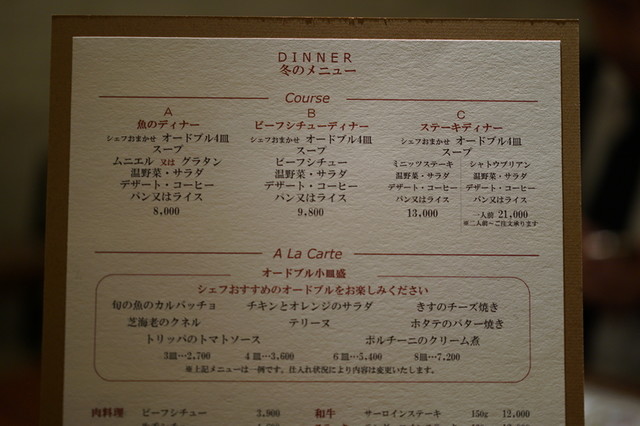 DINNER
冬のメニュー
Course
A
魚のディナー
シェフおまかせ オードブル4皿
スープ
ムニエル 又は グラタン
温野菜・サラダ
デザート・コーヒー
パン又はライス
8,000
B
ビーフシチューディナー
シェフおまかせ オードブル4皿
スープ
ビーフシチュー
温野菜・サラダ
デザート・コーヒー
パン又はライス
9,800
C
ステーキディナー
シェフおまかせ オードブル4皿
スープ
ミニッツステーキ
温野菜・サラダ
デザート・コーヒー
パン又はライス
13,000
シャトウブリアン
温野菜・サラダ
デザート・コーヒー
パン又はライス
一人前 21,000
※二人前〜ご注文承ります
A La Carte
オードブル小皿盛
シェフおすすめのオードブルをお楽しみください
旬の魚のカルパッチョ チキンとオレンジのサラダ きすのチーズ焼き
芝海老のクネル テリーヌ ホタテのバター焼き
トリッパのトマトソース ポルチーニのクリーム煮
3皿…2,700 4皿…3,600 6皿…5,400 8皿…7,200
※上記メニューは一例です。仕入れ状況により内容は変更いたします。
肉料理 ビーフシチュー 3,900 和牛 サーロインステーキ 150g 12,000